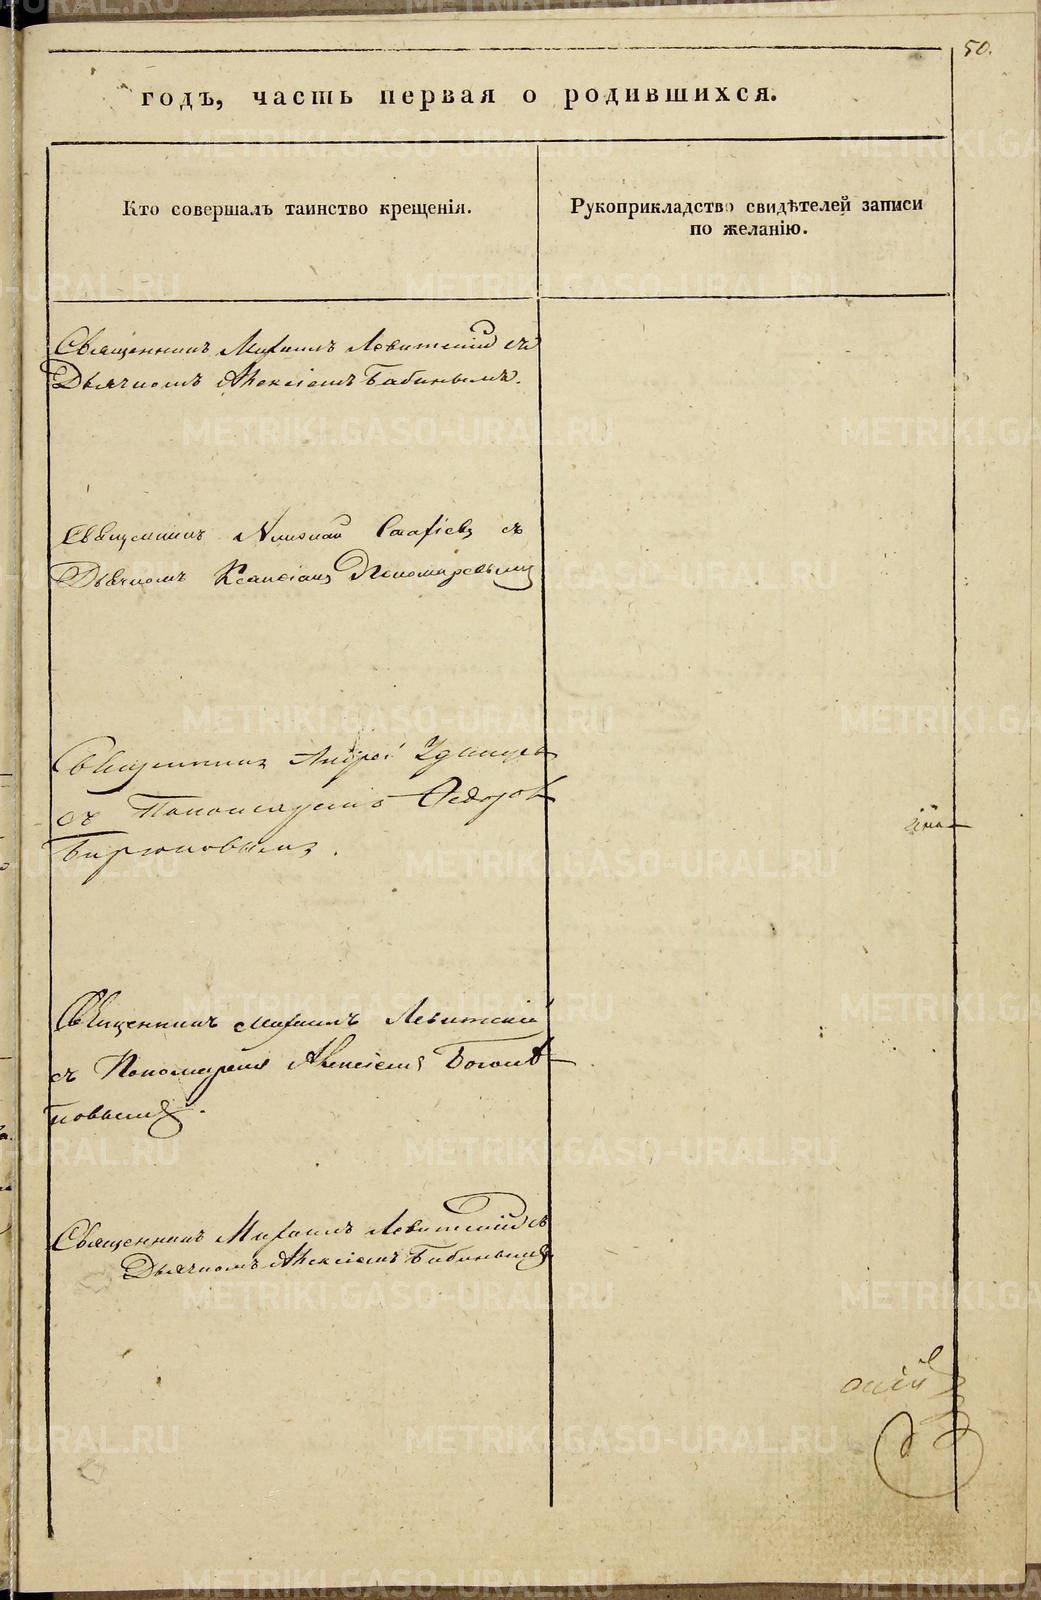 50.
годъ, часть первая о родившихся.
Кто совершалъ таинство крещенія.
Рукоприкладство свидѣтелей записи
по желанію.
Священникъ Михаилъ Левитскій съ
Дьячкомъ Алексіемъ Бабинымъ.
Священникъ Николай съ
Дьячкомъ Пономаревымъ
Священникъ Андрей
съ Пономаремъ Ѳедоромъ
Бирюковымъ.
Священникъ Михаилъ Левитскій
съ Пономаремъ Алексіемъ Боголѣ-
повымъ.
Священникъ Михаилъ Левитскій съ
Дьячкомъ Алексіемъ Бабинымъ
METRIKI.GASO-URAL.RU